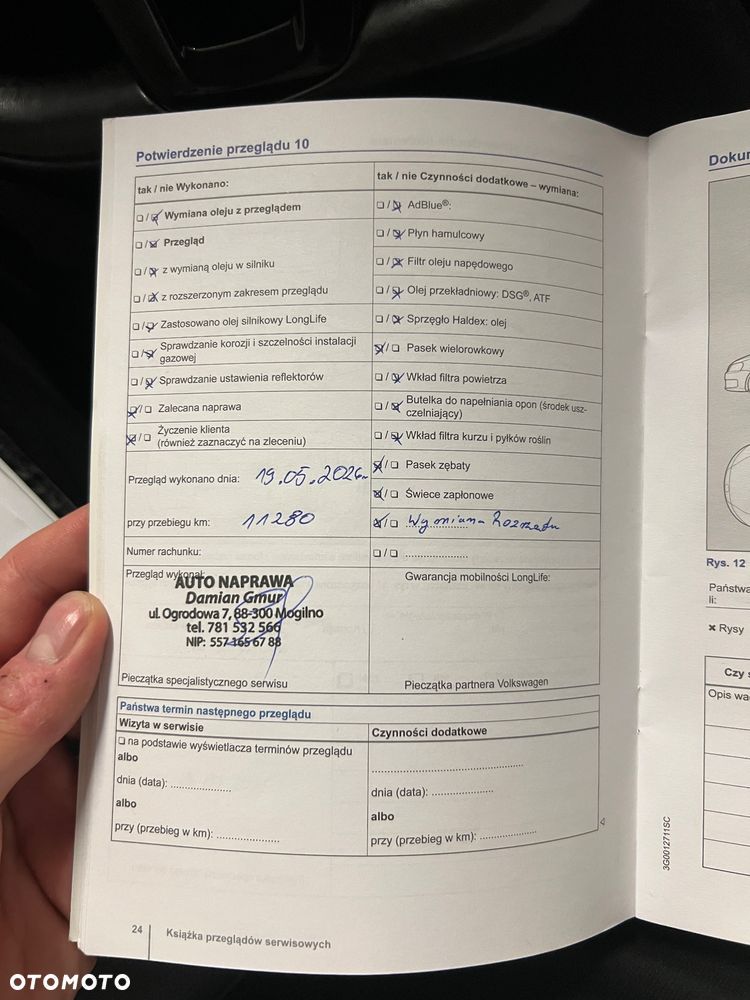 Potwierdzenie przeglądu 10
tak / nie Wykonano:
❏ / ❏ Wymiana oleju z przeglądem
❏ / ❏ Przegląd
❏ / ❏ z wymianą oleju w silniku
❏ / ❏ z rozszerzonym zakresem przeglądu
❏ / ❏ Zastosowano olej silnikowy LongLife
❏ / ❏ Sprawdzanie korozji i szczelności instalacji
gazowej
❏ / ❏ Sprawdzanie ustawienia reflektorów
❏ / ❏ Zalecana naprawa
❏ / ❏ Życzenie klienta
(również zaznaczyć na zleceniu)
Przegląd wykonano dnia: 19.05.2026
przy przebiegu km: 11280
Numer rachunku:
Przegląd wykonał:
AUTO NAPRAWA
Damian Gmur
ul. Ogrodowa 7, 88-300 Mogilno
tel. 781 532 566
NIP: 557 165 67 88
Pieczątka specjalistycznego serwisu
tak / nie Czynności dodatkowe – wymiana:
❏ / ❏ AdBlue®:
❏ / ❏ Płyn hamulcowy
❏ / ❏ Filtr oleju napędowego
❏ / ❏ Olej przekładniowy: DSG®, ATF
❏ / ❏ Sprzęgło Haldex: olej
❏ / ❏ Pasek wielorowkowy
❏ / ❏ Wkład filtra powietrza
❏ / ❏ Butelka do napełniania opon (środek usz-
czelniający)
❏ / ❏ Wkład filtra kurzu i pyłków roślin
❏ / ❏ Pasek zębaty
❏ / ❏ Świece zapłonowe
❏ / ❏ Wymiana Rozrządu
❏ / ❏ .....................
Gwarancja mobilności LongLife:
Pieczątka partnera Volkswagen
Państwa termin następnego przeglądu
Wizyta w serwisie
❏ na podstawie wyświetlacza terminów przeglądu
albo
dnia (data): ....................
albo
przy (przebieg w km): ....................
Czynności dodatkowe
dnia (data): ....................
albo
przy (przebieg w km): ....................
24
Książka przeglądów serwisowych
3G0012711SC
Dokum
Rys. 12
Państwa
li:
✖ Rysy
Czy
Opis wa
OTOMOTO